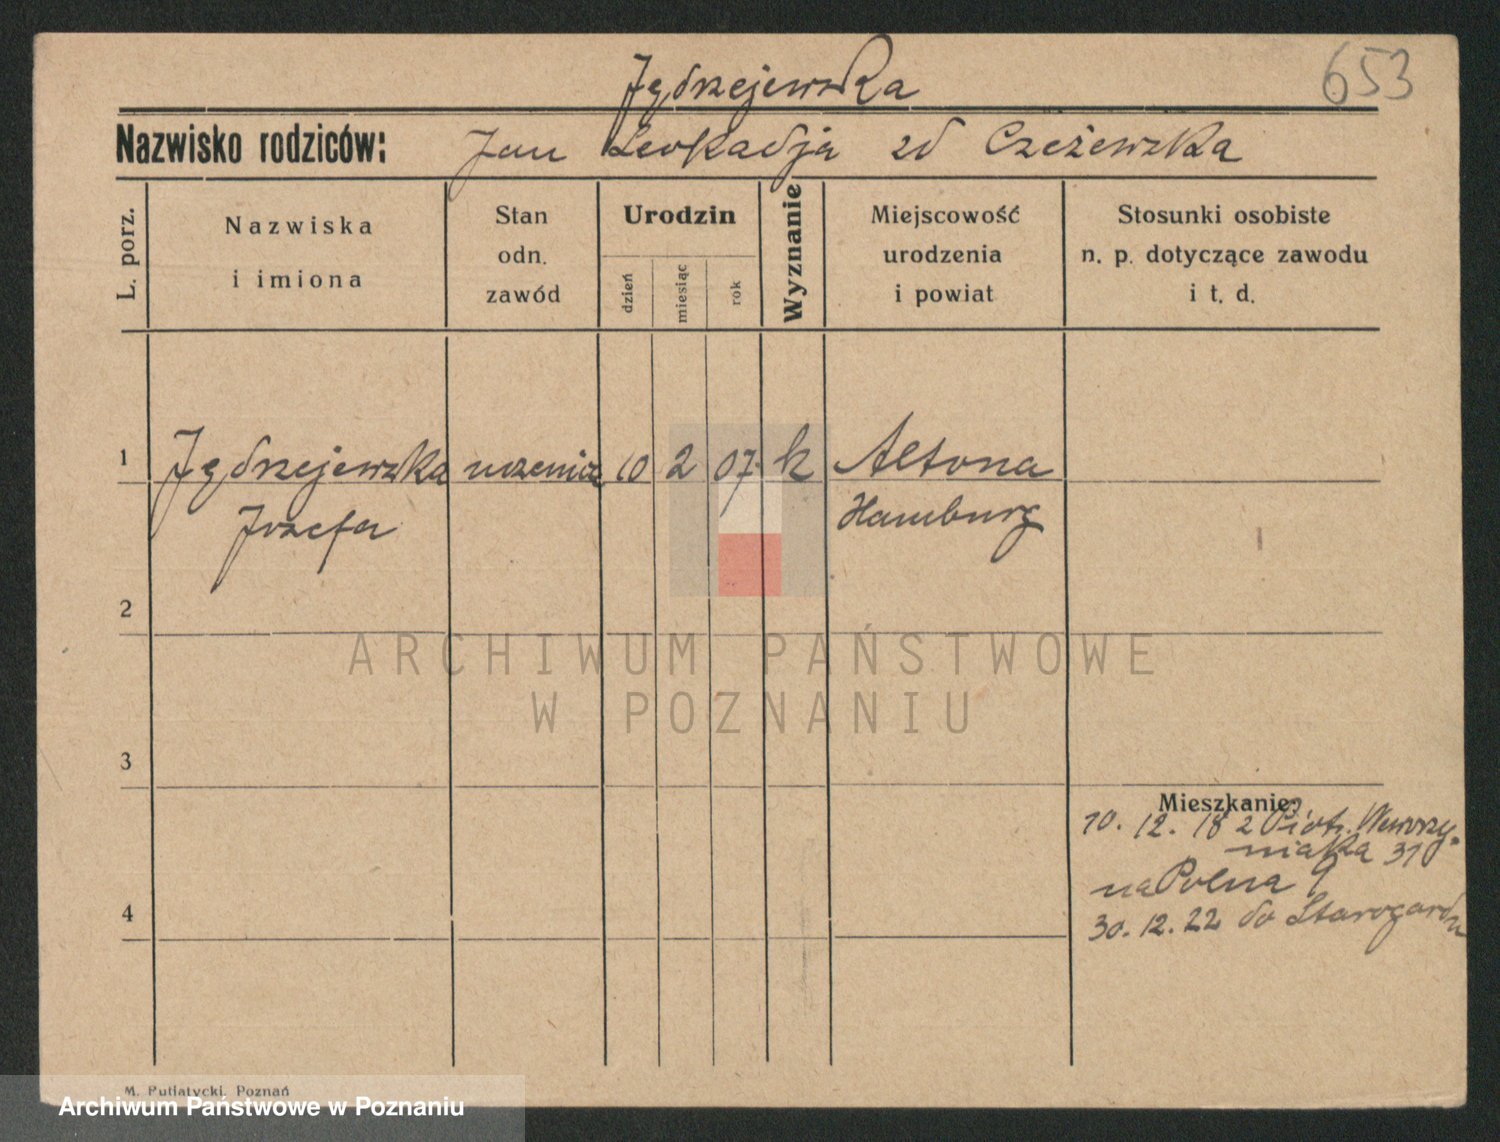 653
Jędrzejewska
Nazwisko rodziców: Jan Leokadja zd Czeżewska
L. porz.
Nazwiska
i imiona
Stan
odn.
zawód
Urodzin
dzień
miesiąc
rok
Wyznanie
Miejscowość
urodzenia
i powiat
Stosunki osobiste
n. p. dotyczące zawodu
i t. d.
1 Jędrzejewska uczenica 10 2 07 k Altona
Józefa Hamburg
2
ARCHIWUM PAŃSTWOWE
W POZNANIU
3
Mieszkanie:
10. 12. 18 z Piotr. Wawrzy-
niaka 31
na Polna 9
4
30. 12. 22 do Starogardu
M. Putiatycki, Poznań
Archiwum Państwowe w Poznaniu